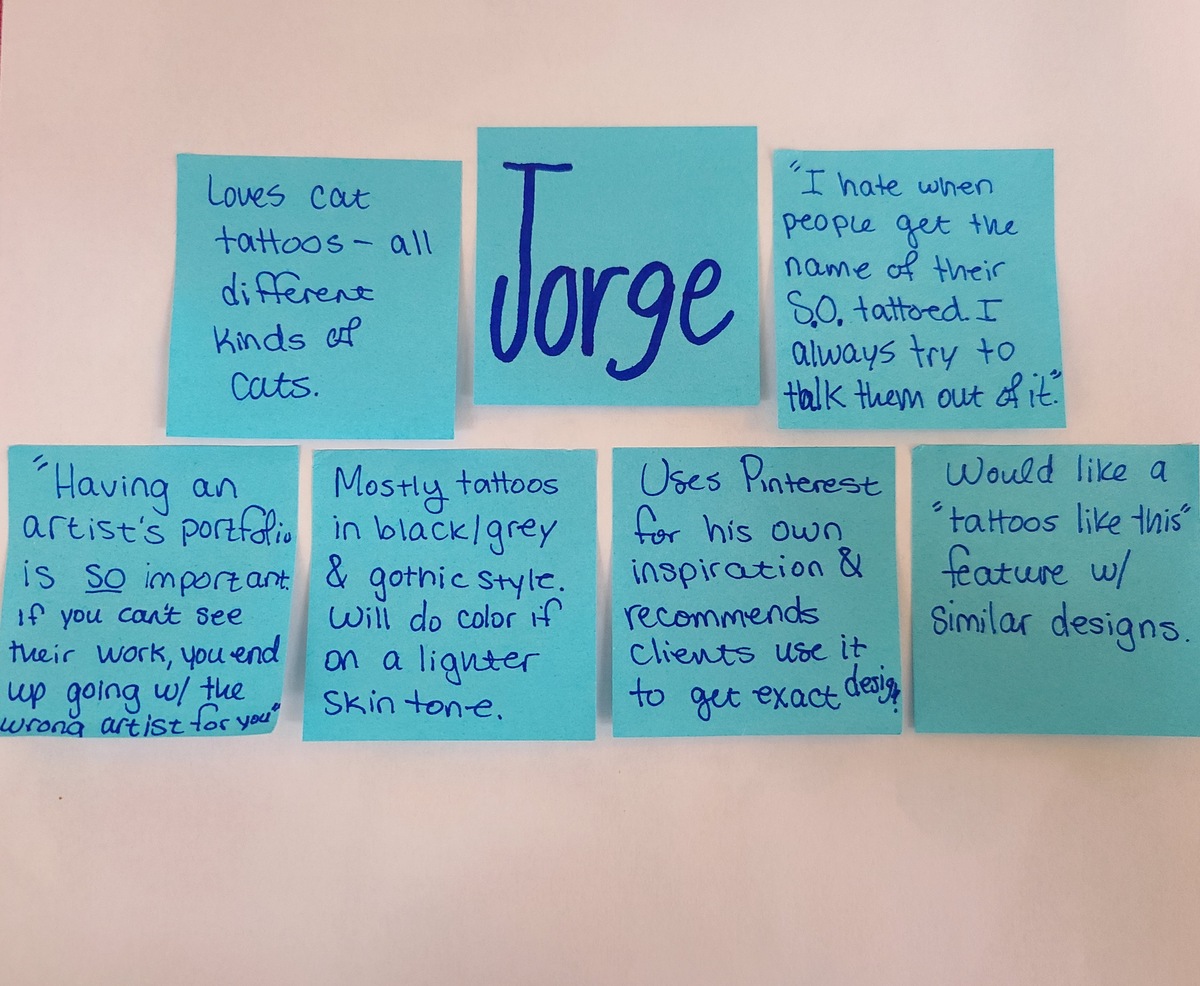 Loves cat
tattoos - all
different
kinds of
cats.
Jorge
"I hate when
people get the
name of their
S.O. tattoed. I
always try to
talk them out of it."
"Having an
artist's portfolio
is SO important.
If you can't see
their work, you end
up going w/ the
wrong artist for you"
Mostly tattoos
in black/grey
& gothic style.
Will do color if
on a lighter
skin tone.
Uses Pinterest
for his own
inspiration &
recommends
clients use it
to get exact design.
Would like a
"tattoos like this"
feature w/
similar designs.